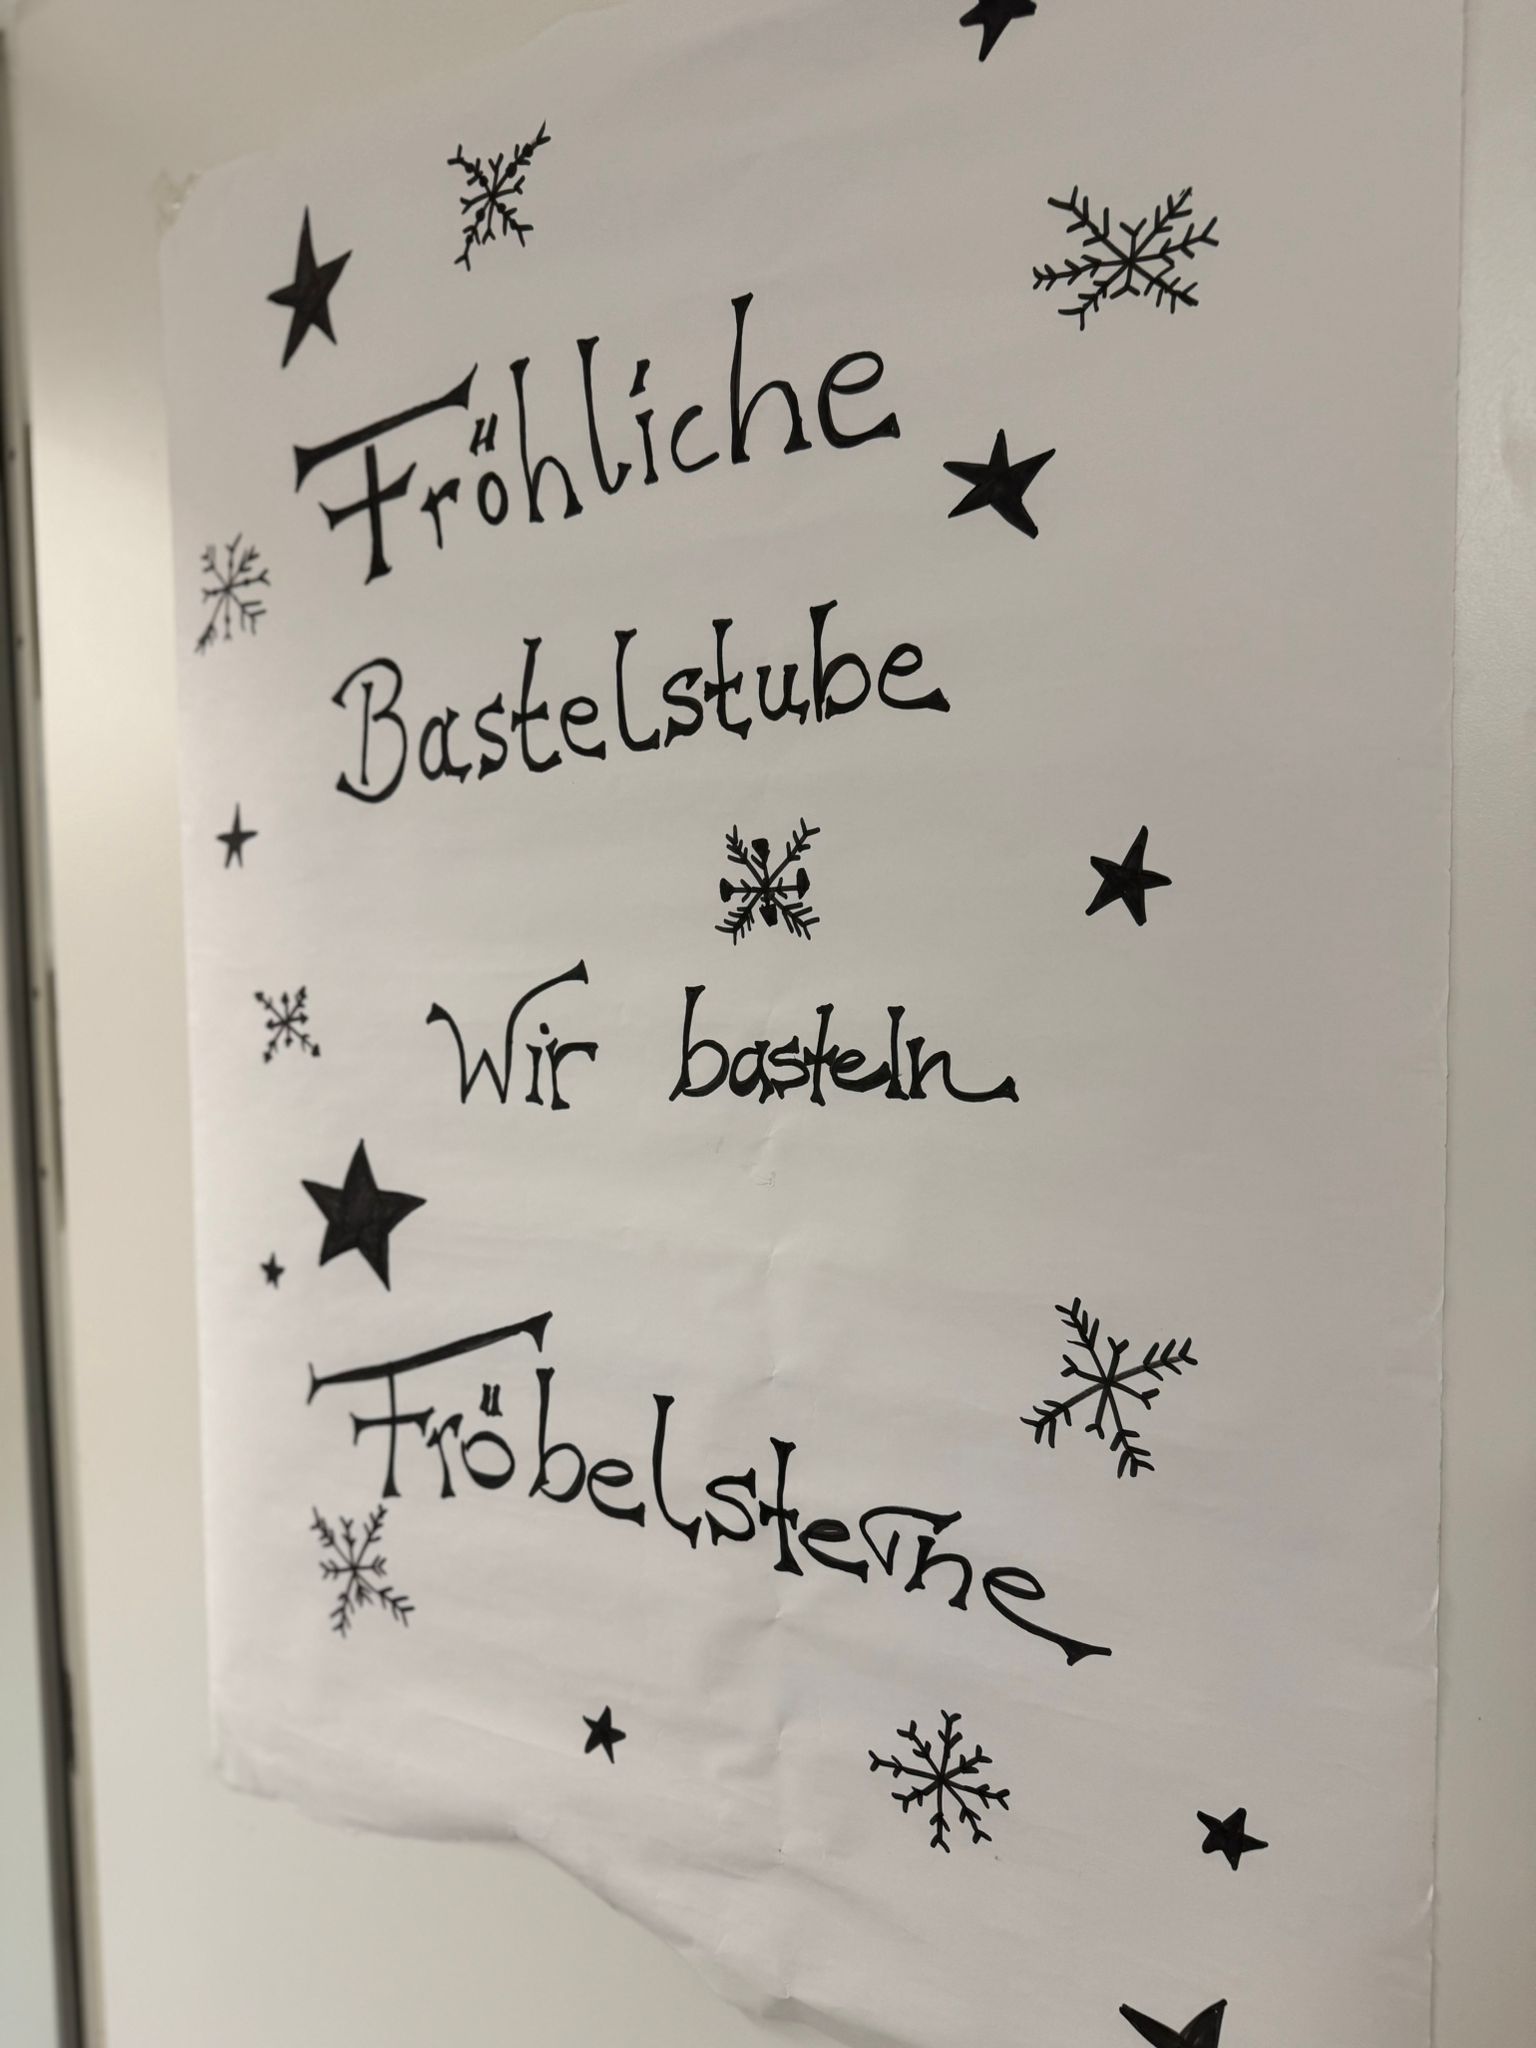 Fröhliche
Bastelstube
Wir basteln
Fröbelsterne